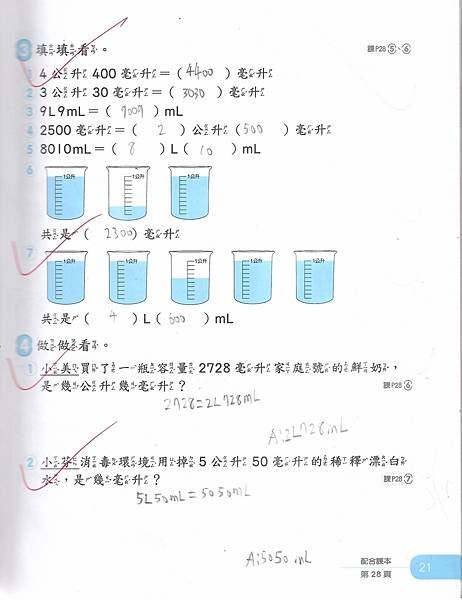 3 填填看。 課P28 5、6
1 4公升400毫升=( 4400 )毫升
2 3公升30毫升=( 3030 )毫升
3 9L9mL=( 9009 )mL
4 2500毫升=( 2 )公升( 500 )毫升
5 8010mL=( 8 )L( 10 )mL
6
1公升 1公升 1公升
共是( 2300 )毫升
7
1公升 1公升 1公升 1公升 1公升
共是( 4 )L( 600 )mL
4 做做看。
1 小美買了一瓶容量2728毫升家庭號的鮮奶,
是幾公升幾毫升? 課P28 6
2728=2L728mL
A:2L728mL
2 小芬消毒環境用掉5公升50毫升的稀釋漂白
水,是幾毫升? 課P28 7
5L50mL=5050mL
A:5050mL
配合課本
第28頁
21